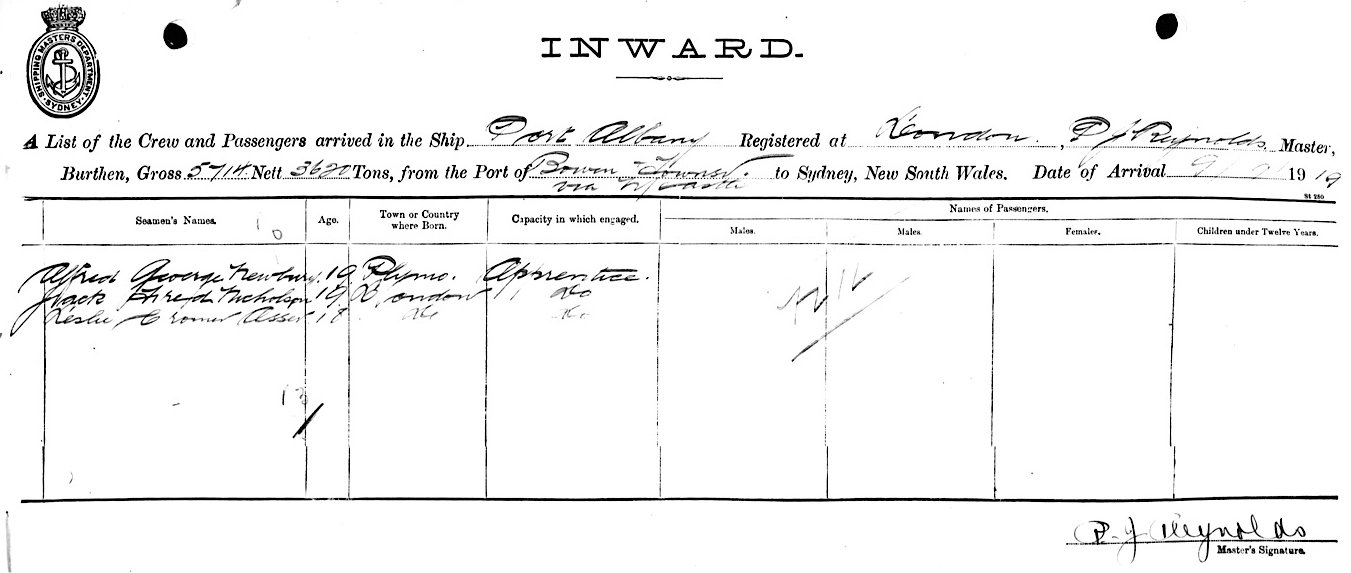 SHIPPING MASTERS DEPARTMENT. SYDNEY
INWARD.
A List of the Crew and Passengers arrived in the Ship Port Albany Registered at London, P J Reynolds Master,
Burthen, Gross 5714 Nett 3620 Tons, from the Port of Bowen to Sydney, New South Wales. Date of Arrival 9/2/ 1919
via
St 280
Seamen's Names. Age. Town or Country where Born. Capacity in which engaged. Names of Passengers.
Males. Males. Females. Children under Twelve Years.
10
Alfred George Newbury 19 Plymo. Apprentice.
Jack Nicholson 19 London Do
Leslie Cromer Asser 18 Do Do
Nil
13
P. J Reynolds
Master's Signature.